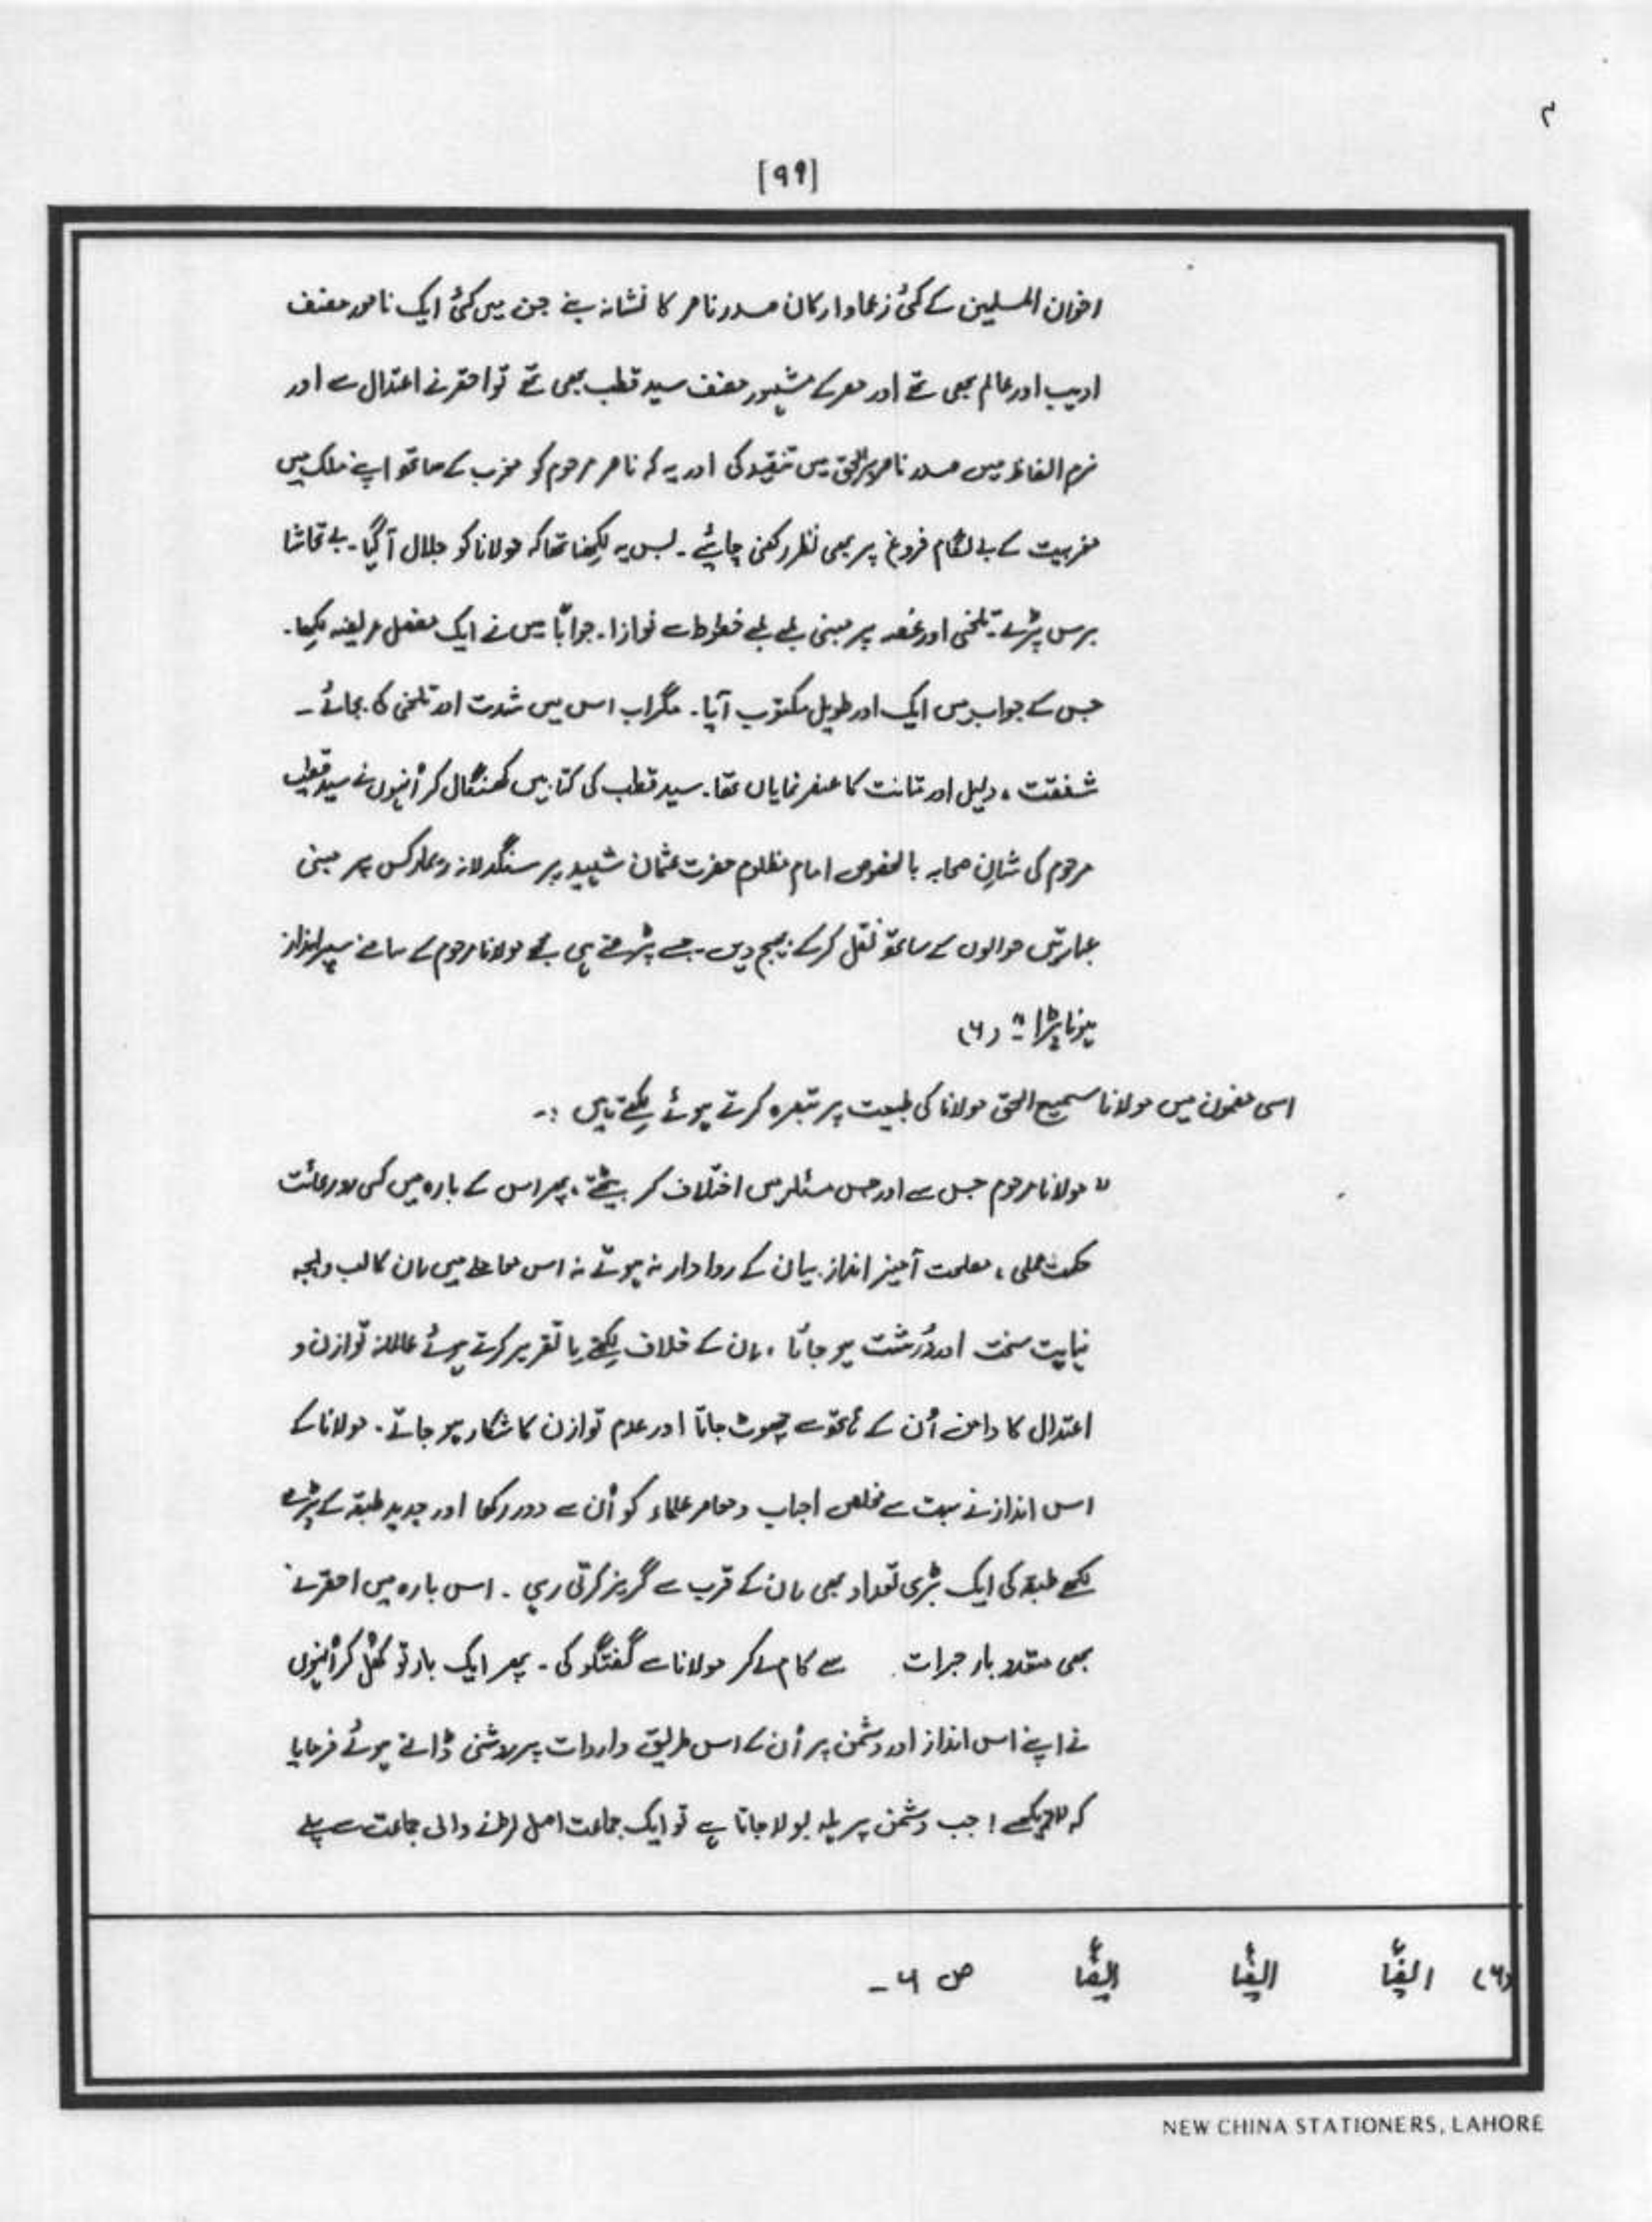 ۲
[۹۹]
اخوان المسلمین کے کئی زعما و ارکان صدر ناصر کا نشانہ بنے جن میں کئی ایک نامور مصنف
ادیب اور عالم بھی تھے اور مصر کے مشہور مصنف سید قطب بھی تھے تو احقر نے اعتدال سے اور
نرم الفاظ میں صدر ناصر پر الحق میں تنقید کی اور یہ کہ ناصر مرحوم کو مغرب کے ساتھ اپنے ملک میں
مغربیت کے بے لگام فروغ پر بھی نظر رکھنی چاہیئے ۔ بس یہ لکھنا تھا کہ مولانا کو جلال آ گیا ۔ بے تحاشا
برس پڑے ۔ تلخی اور غصہ پر مبنی لمبے لمبے خطوط سے نوازا ۔ جواباً میں نے ایک مفصل عریضہ لکھا ۔
جس کے جواب میں ایک اور طویل مکتوب آیا ۔ مگر اب اس میں شدت اور تلخی کی بجائے ۔
شفقت ، دلیل اور متانت کا عنصر نمایاں تھا ۔ سید قطب کی کتابیں کھنگال کر اُنہوں نے سید قطب
مرحوم کی شانِ صحابہ بالخصوص امام مظلوم حضرت عثمان شہید پر سنگدلانہ ریمارکس پر مبنی
عبارتیں حوالوں کے ساتھ نقل کر کے بھیج دیں ۔ جسے پڑھتے ہی مجھے مولانا مرحوم کے سامنے سپر انداز
ہونا پڑا " ۔ (۶)
اسی مضمون میں مولانا سمیع الحق مولانا کی طبیعت پر تبصرہ کرتے ہوئے لکھتے ہیں :۔
" مولانا مرحوم جس سے اور جس مسئلہ میں اختلاف کر بیٹھتے ، پھر اس کے بارہ میں کسی رو رعائت
حکمت عملی ، مصلحت آمیز انداز بیان کے روا دار نہ ہوتے نہ اس معاملے میں ان کا لب و لہجہ
نہایت سخت اور دُرشت ہو جاتا ، ان کے خلاف لکھتے یا تقریر کرتے ہوئے عالمانہ توازن و
اعتدال کا دامن اُن کے ہاتھ سے چھوٹ جاتا اور عدم توازن کا شکار ہو جاتے ۔ مولانا کے
اس انداز نے بہت سے مخلص احباب و معاصر علماء کو اُن سے دور رکھا اور جدید طبقہ کے پڑھے
لکھے طبقہ کی ایک بڑی تعداد بھی ان کے قرب سے گریز کرتی رہی ۔ اس بارہ میں احقر نے
بھی متعدد بار جرات سے کام لے کر مولانا سے گفتگو کی ۔ پھر ایک بار تو کھُل کر اُنہوں
نے اپنے اس انداز اور دشمن پر اُن کے اس طریق واردات پر روشنی ڈالتے ہوئے فرمایا
کہ دیکھئے ! جب دشمن پر ہلہ بولا جاتا ہے تو ایک جماعت اصل لڑنے والی جماعت سے پہلے
(۶) ایضاً ایضاً ایضاً ص ۶ ۔
NEW CHINA STATIONERS, LAHORE